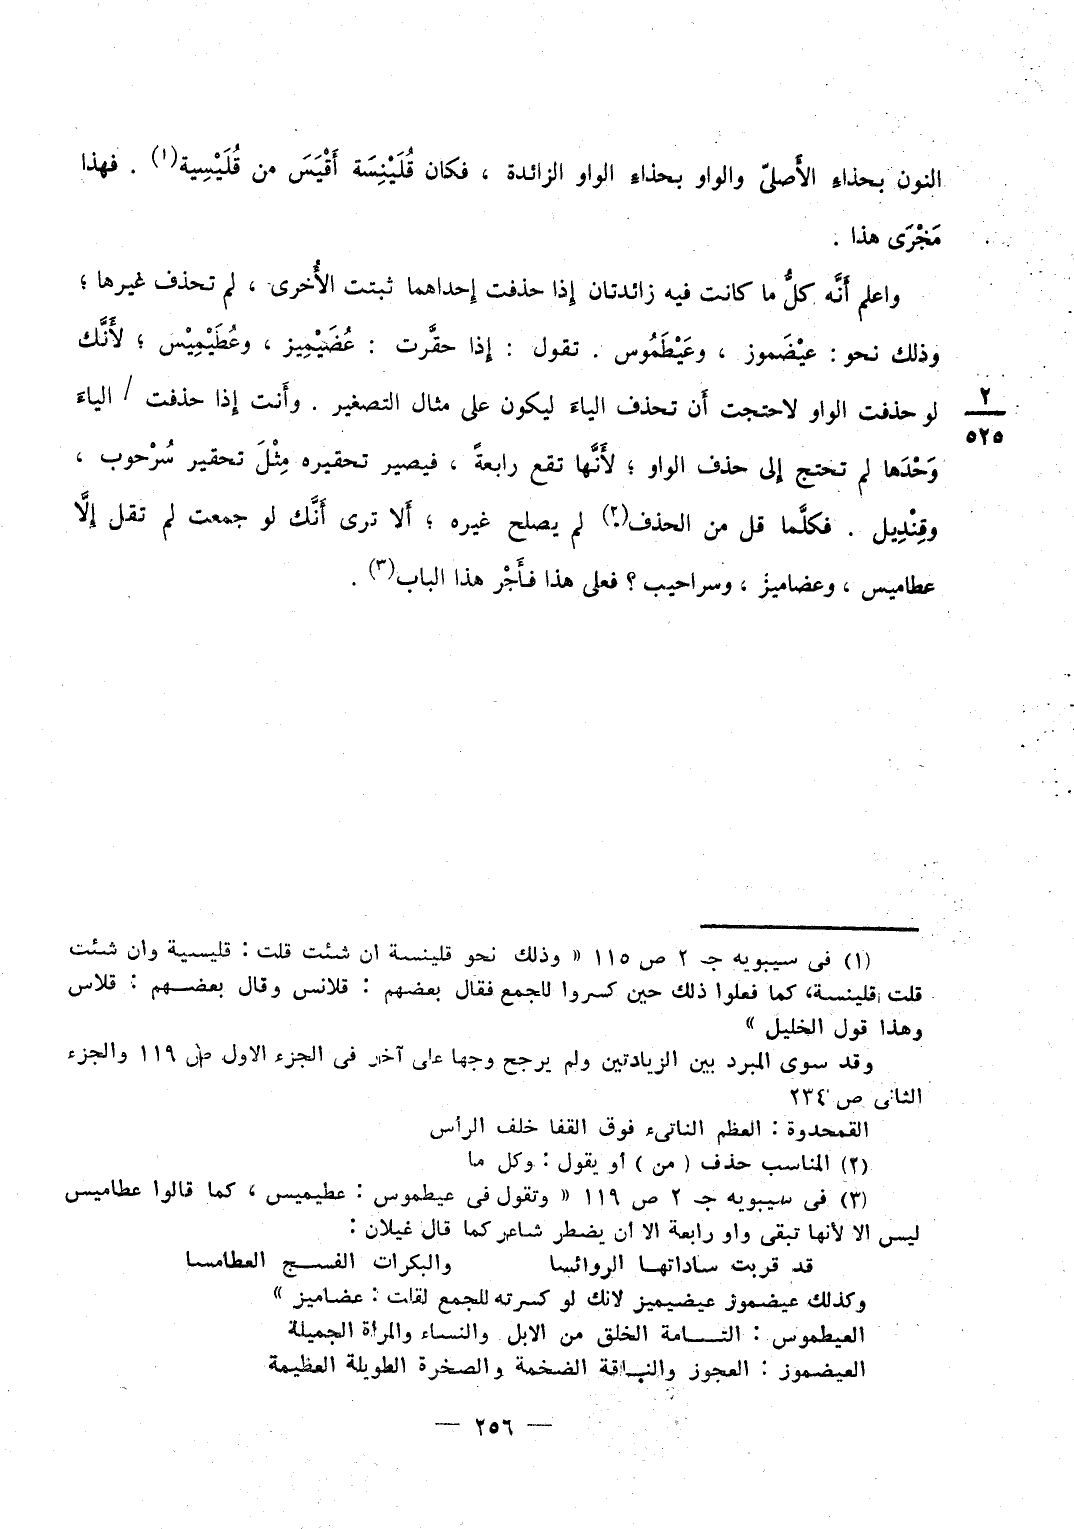 النون بحذاءِ الأَصليّ والواو بحذاءِ الواو الزائدة ، فكان قُلَيْنِسَة أَقْيَسَ من قُلَيْسِية(١) . فهذا
مَجْرَى هذا .
واعلم أَنَّه كلُّ ما كانت فيه زائدتان إِذا حذفت إِحداهما ثبتت الأُخرى ، لم تحذف غيرها ؛
وذلك نحو : عيْضَموز ، وعَيْطَمُوس . تقول : إِذا حقَّرت : عُضَيْمِيز ، وعُطَيْمِيْس ؛ لأَنَّك
لو حذفت الواو لاحتجت أَن تحذف الياءَ ليكون على مثال التصغير . وأَنت إِذا حذفت / الياءَ
٢
٥٢٥
وَحْدَها لم تحتج إِلى حذف الواو ؛ لأَنَّها تقع رابعةً ، فيصير تحقيره مِثْلَ تحقير سُرْحوب ،
وقِنْدِيل . فكلَّما قل من الحذف(٢) لم يصلح غيره ؛ أَلا ترى أَنَّك لو جمعت لم تقل إِلَّا
عطاميس ، وعضاميز ، وسراحيب ؟ فعلى هذا فأَجْر هذا الباب(٣) .
(١) فى سيبويه جـ ٢ ص ١١٥ « وذلك نحو قلينسة ان شئت قلت : قليسية وان شئت
قلت قلينسة، كما فعلوا ذلك حين كسروا للجمع فقال بعضهم : قلانس وقال بعضـهم : قلاس
وهذا قول الخليل »
وقد سوى المبرد بين الزيادتين ولم يرجح وجها على آخر فى الجزء الاول ص ١١٩ والجزء
الثانى ص ٢٣٤
القمحدوة : العظم الناتىء فوق القفا خلف الرأس
(٢) المناسب حذف ( من ) أو يقول : وكل ما
(٣) فى سيبويه جـ ٢ ص ١١٩ « وتقول فى عيطموس : عطيميس ، كما قالوا عطاميس
ليس الا لأنها تبقى واو رابعة الا أن يضطر شاعر كما قال غيلان :
قد قربت ساداتهـا الروائسا والبكرات الفسـج العطامسا
وكذلك عيضموز عيضيميز لانك لو كسرته للجمع لقلت : عضاميز »
العيطموس : التـامة الخلق من الابل والنساء والمرأة الجميلة
العيضموز : العجوز والنـاقة الضخمة والصخرة الطويلة العظيمة
— ٢٥٦ —